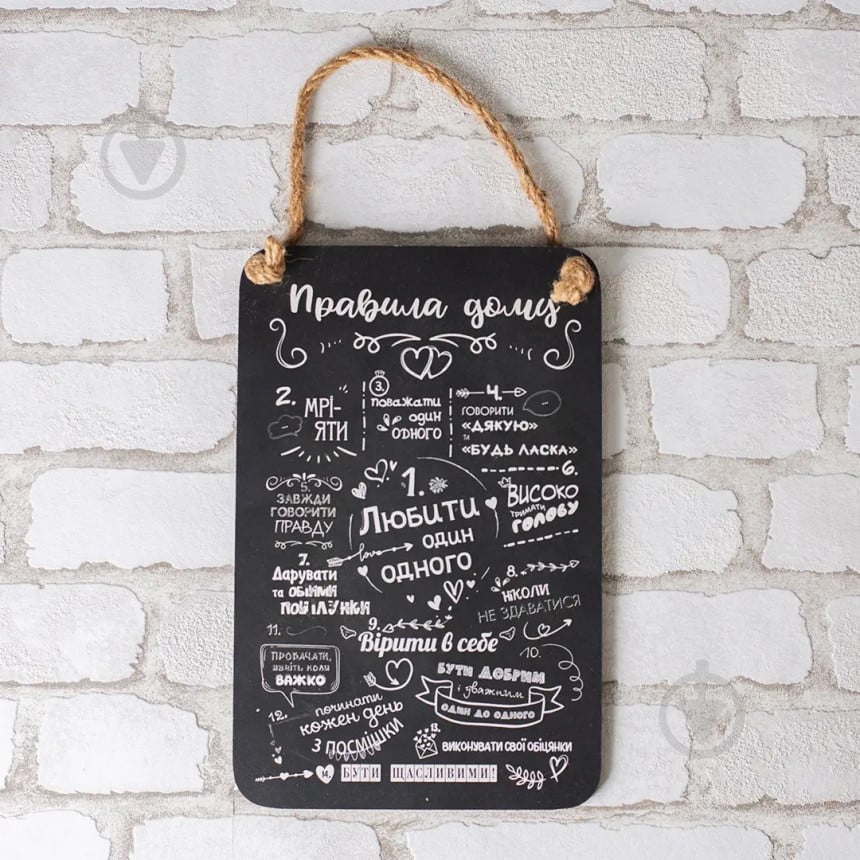 Правила дому
2. МРІ-
ЯТИ
3.
поважати
один
одного
4.
ГОВОРИТИ
«ДЯКУЮ»
ТА
«БУДЬ ЛАСКА»
5.
ЗАВЖДИ
ГОВОРИТИ
ПРАВДУ
1.
Любити
один
одного
love
6.
ВИСОКО
тримати
голову
7.
Дарувати
та обійми
поцілунки
8.
НІКОЛИ
НЕ ЗДАВАТИСЯ
9.
Вірити в себе
10.
БУТИ ДОБРИМ
і уважним
один до одного
11.
ПРОБАЧАТИ,
НАВІТЬ КОЛИ
ВАЖКО
12.
починати
кожен день
з посмішки
13.
ВИКОНУВАТИ СВОЇ ОБІЦЯНКИ
14.
БУТИ ЩАСЛИВИМИ!